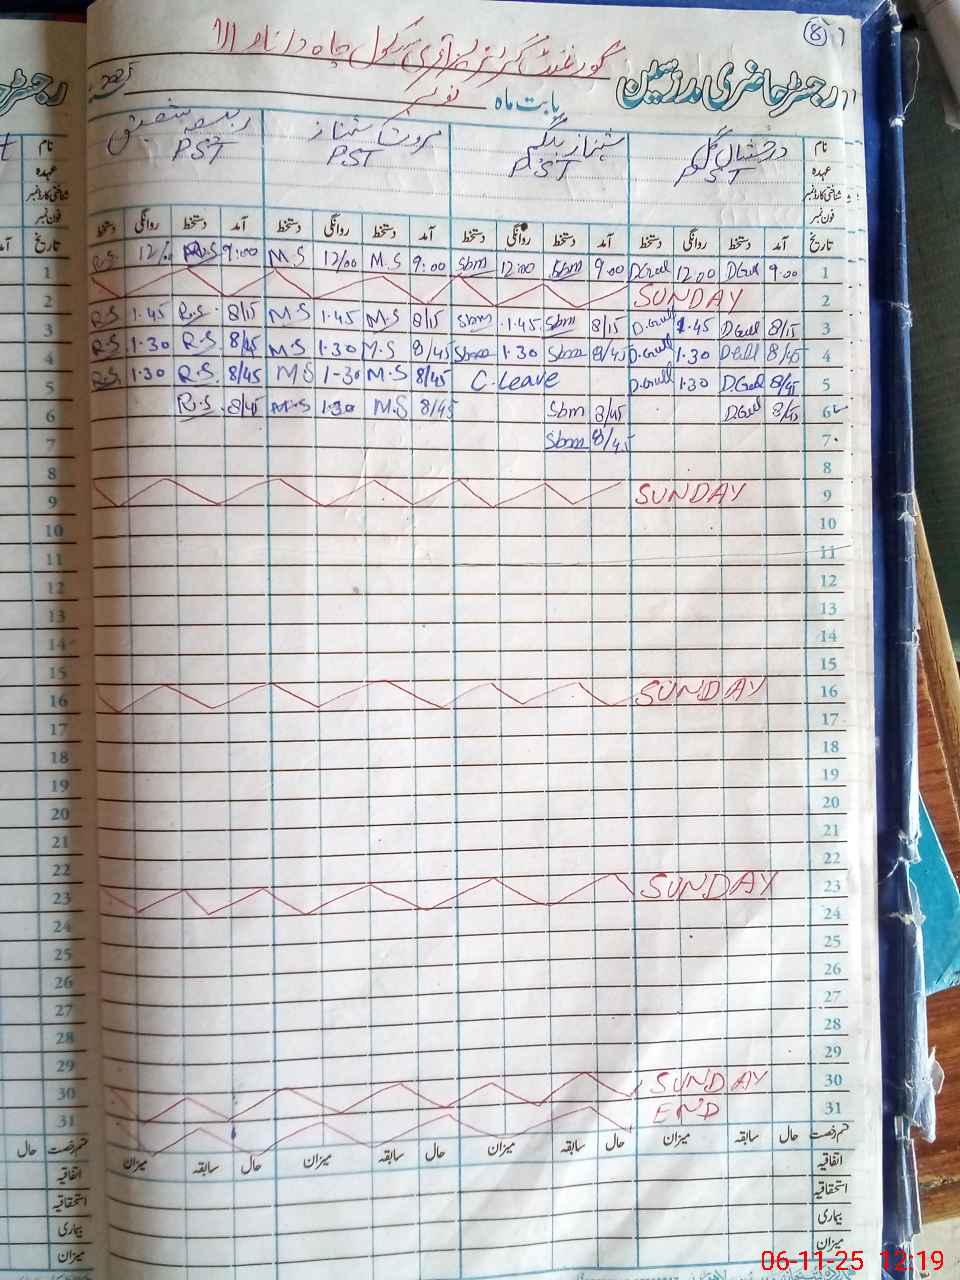 8
گورنمنٹ گرلز پرائمری سکول چاہ
رجسٹر حاضری مدرسین بابت ماہ نومبر 2025
نام درخشاں گل شہناز بیگم
عہدہ PST PST PST PST
شناختی کارڈ نمبر
فون نمبر
تاریخ آمد دستخط روانگی دستخط آمد دستخط روانگی دستخط آمد دستخط روانگی دستخط آمد دستخط روانگی دستخط
R.S. 12/00 R.S 9:00 M.S 12/00 M.S 9:00 Sbm 12:00 Sbm 9:00 D.Gul 12:00 D.Gul 9:00 1
SUNDAY 2
R.S 1.45 R.S. 8/15 M.S 1.45 M.S 8/15 Sbm 1.45 Sbm 8/15 D.Gull 1.45 D.Gul 8/15 3
R.S 1.30 R.S 8/45 M.S 1.30 M.S 8/45 Sbm 1.30 Sbm 8/45 D.Gull 1.30 D.Gul 8/45 4
R.S 1.30 R.S. 8/45 M.S 1-30 M.S 8/45 C.Leave D.Gull 1.30 D.Gul 8/45 5
R.S 8/45 M.S 1.30 M.S 8/45 Sbm 8/45 D.Gul 8/45 6
Sbm 8/45 7
8
SUNDAY 9
10
11
12
13
14
15
SUNDAY 16
17
18
19
20
21
22
SUNDAY 23
24
25
26
27
28
29
SUNDAY 30
END 31
قسم رخصت حال سابقہ میزان حال سابقہ میزان حال سابقہ میزان حال سابقہ میزان
اتفاقیہ
استحقاقیہ
بیماری
میزان
06-11-25 12:19